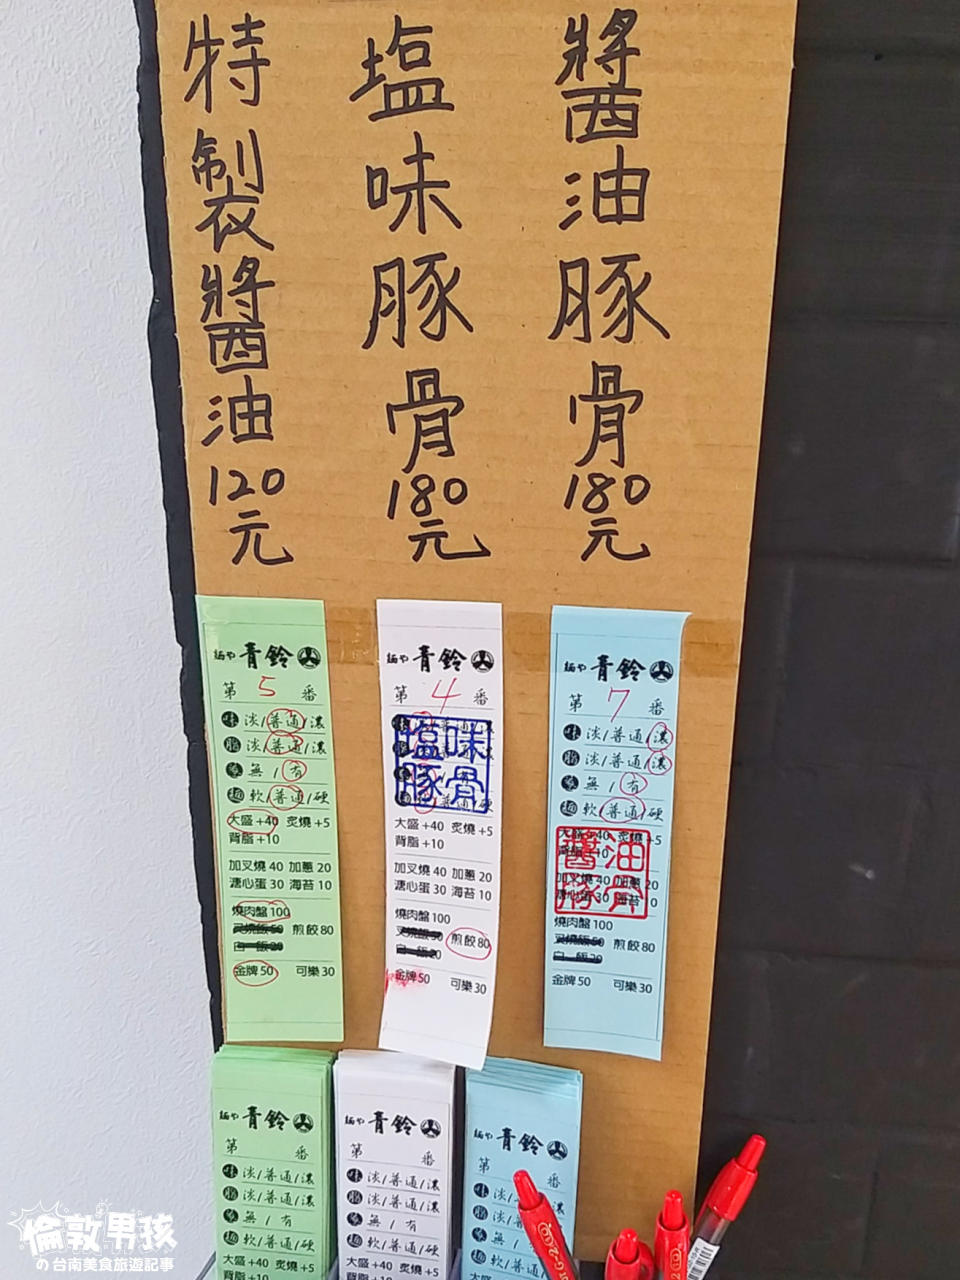 特製醬油120元
塩味豚骨180元
醬油豚骨180元
麺や 青鈴
第 5 番
味 淡/普通/濃
脂 淡/普通/濃
蔥 無 / 有
麺 軟/普通/硬
大盛 +40 炙燒 +5
背脂 +10
加叉燒 40 加蔥 20
溏心蛋 30 海苔 10
燒肉盤 100
叉燒飯 50 煎餃 80
白 飯 20
金牌 50 可樂 30
麺や 青鈴
第 4 番
塩味
豚骨
大盛 +40 炙燒 +5
背脂 +10
加叉燒 40 加蔥 20
溏心蛋 30 海苔 10
燒肉盤 100
叉燒飯 50 煎餃 80
白 飯 20
金牌 50 可樂 30
麺や 青鈴
第 7 番
味 淡/普通/濃
脂 淡/普通/濃
蔥 無 / 有
麺 軟/普通/硬
大盛 +40 炙燒 +5
醬油
豚骨
加叉燒 40 加蔥 20
溏心蛋 30 海苔 10
燒肉盤 100
叉燒飯 50 煎餃 80
白 飯 20
金牌 50 可樂 30
麺や 青鈴
第 番
味 淡/普通/濃
脂 淡/普通/濃
蔥 無 / 有
麺 軟/普通/硬
大盛 +40 炙燒 +5
背脂 +10
麺や 青鈴
第 番
味 淡/普通/濃
脂 淡/普通/濃
蔥 無 / 有
麺 軟/普通/硬
大盛 +40 炙燒 +5
背脂 +10
麺や 青鈴
第
味 淡
脂 淡
蔥 無
麺 軟
大盛
倫敦男孩
の台南美食旅遊記事